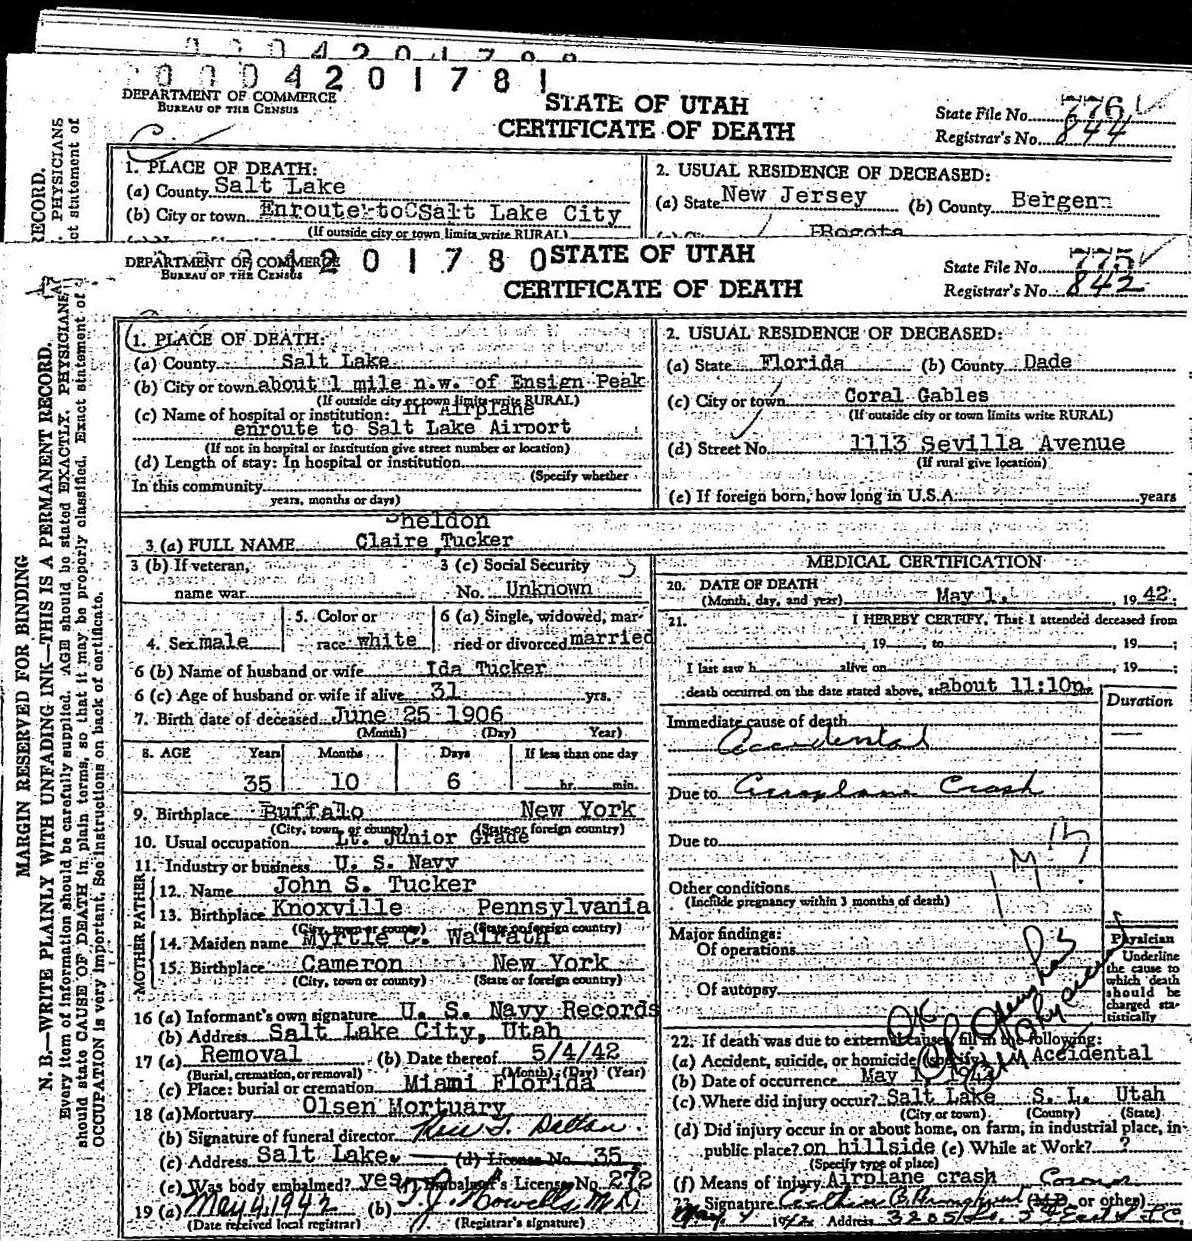 0 0 0 4 2 0 1 7 8 1
DEPARTMENT OF COMMERCE
BUREAU OF THE CENSUS
STATE OF UTAH
CERTIFICATE OF DEATH
State File No. 776
Registrar's No. 844
1. PLACE OF DEATH:
(a) County Salt Lake
(b) City or town Enroute to Salt Lake City
(If outside city or town limits write RURAL)
2. USUAL RESIDENCE OF DECEASED:
(a) State New Jersey (b) County Bergen
Bogota
2 0 1 7 8 0
DEPARTMENT OF COMMERCE
BUREAU OF THE CENSUS
STATE OF UTAH
CERTIFICATE OF DEATH
State File No. 775
Registrar's No. 842
MARGIN RESERVED FOR BINDING
N. B.—WRITE PLAINLY WITH UNFADING INK—THIS IS A PERMANENT RECORD.
Every item of information should be carefully supplied. AGE should be stated EXACTLY. PHYSICIANS
should state CAUSE OF DEATH in plain terms, so that it may be properly classified. Exact statement of
OCCUPATION is very important. See instructions on back of certificate.
1. PLACE OF DEATH:
(a) County Salt Lake
(b) City or town about 1 mile n.w. of Ensign Peak
(If outside city or town limits write RURAL)
(c) Name of hospital or institution: in Airplane
enroute to Salt Lake Airport
(If not in hospital or institution give street number or location)
(d) Length of stay: In hospital or institution
(Specify whether
In this community
years, months or days)
2. USUAL RESIDENCE OF DECEASED:
(a) State Florida (b) County Dade
(c) City or town Coral Gables
(If outside city or town limits write RURAL)
(d) Street No. 1113 Sevilla Avenue
(If rural give location)
(e) If foreign born, how long in U.S.A. years
Sheldon
3 (a) FULL NAME Claire Tucker
3 (b) If veteran,
name war
3 (c) Social Security
No. Unknown
4. Sex male
5. Color or
race white
6 (a) Single, widowed, mar-
ried or divorced married
6 (b) Name of husband or wife Ida Tucker
6 (c) Age of husband or wife if alive 31 yrs.
7. Birth date of deceased June 25 1906
(Month) (Day) Year)
8. AGE Years Months Days If less than one day
35 10 6 hr. min.
9. Birthplace Buffalo New York
(City, town, or county) (State or foreign country)
10. Usual occupation Lt. Junior Grade
11. Industry or business U. S. Navy
FATHER
12. Name John S. Tucker
13. Birthplace Knoxville Pennsylvania
(City, town or county) (State or foreign country)
MOTHER
14. Maiden name Myrtle C. Walrath
15. Birthplace Cameron New York
(City, town or county) (State or foreign country)
16 (a) Informant's own signature U. S. Navy Records
(b) Address Salt Lake City, Utah
17 (a) Removal (b) Date thereof 5/4/42
(Burial, cremation, or removal) (Month) (Day) (Year)
(c) Place: burial or cremation Miami Florida
18 (a) Mortuary Olsen Mortuary
(b) Signature of funeral director
(c) Address Salt Lake. (d) License No. 35
(e) Was body embalmed? yes Embalmer's License No. 272
19 (a) May 4, 1942 (b) T. J. Howells M.D.
(Date received local registrar) (Registrar's signature)
MEDICAL CERTIFICATION
20. DATE OF DEATH
(Month, day, and year) May 1, 1942;
21. I HEREBY CERTIFY, That I attended deceased from
, 19 to , 19 ;
I last saw h alive on , 19 ;
death occurred on the date stated above, at about 11:10p.
Duration
Immediate cause of death
Accidental
Due to Airplane Crash
Due to
Other conditions
(Include pregnancy within 3 months of death)
Major findings:
Of operations
Of autopsy
Physician
Underline
the cause to
which death
should be
charged sta-
tistically
OK
22. If death was due to external causes, fill in the following:
(a) Accident, suicide, or homicide (specify) Accidental
(b) Date of occurrence May 1, 1942
(c) Where did injury occur? Salt Lake S. L. Utah
(City or town) (County) (State)
(d) Did injury occur in or about home, on farm, in industrial place, in
public place? on hillside (e) While at Work? ?
(Specify type of place)
(f) Means of injury Airplane crash Coroner
23. Signature (M.D. or other)
May 4 1942 Address 3205 So. 5th East S L C.